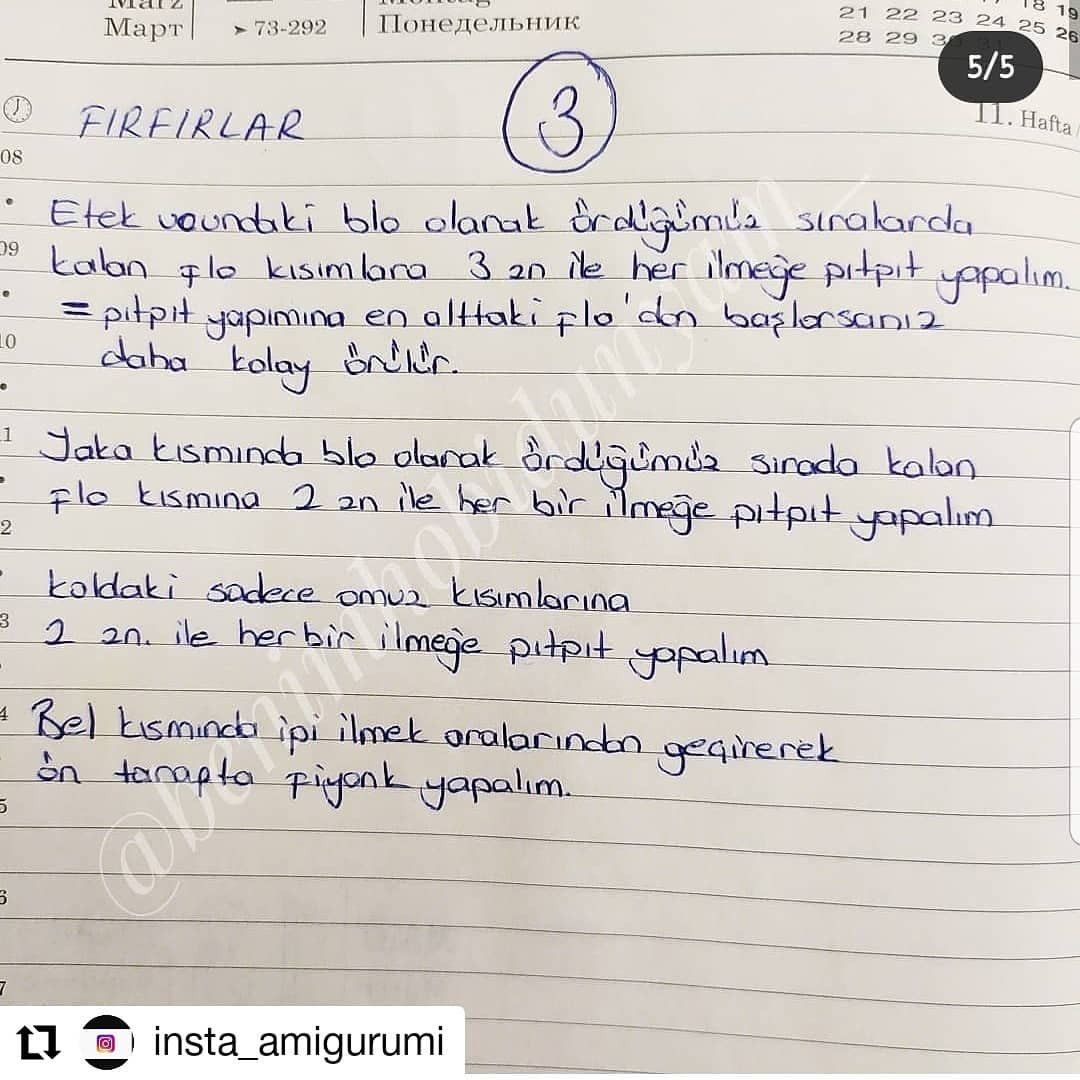 März
Montag
18 19
Март
➤ 73-292
Понедельник
21 22 23 24 25 26
28 29 30 31
5/5
11. Hafta /
FIRFIRLAR
3
08
Etek ucundaki blo olarak ördüğümüz sıralarda
09
kalan flo kısımlara 3 zn ile her ilmeğe pıtpıt yapalım.
= pıtpıt yapımına en alttaki flo'dan başlarsanız
10
daha kolay örülür.
1
Yaka kısmında blo olarak ördüğümüz sırada kalan
flo kısmına 2 zn ile her bir ilmeğe pıtpıt yapalım
2
koldaki sadece omuz kısımlarına
3
2 zn. ile her bir ilmeğe pıtpıt yapalım
4
Bel kısmında ipi ilmek aralarından geçirerek
ön tarafta fiyonk yapalım.
5
6
7
@benimhobidunyam_
insta_amigurumi